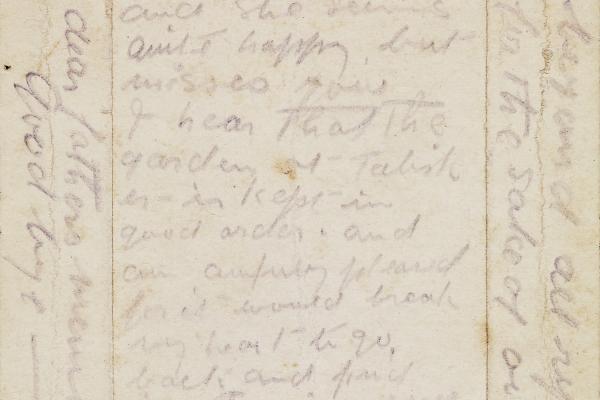 and she seems
quite happy but
misses you
I hear that the
garden at Talisk
er is kept in
good order. and
am awfully pleased
for it would break
my heart to go
back and find
dear fathers mem
Good bye
the sake of ou
beyond all